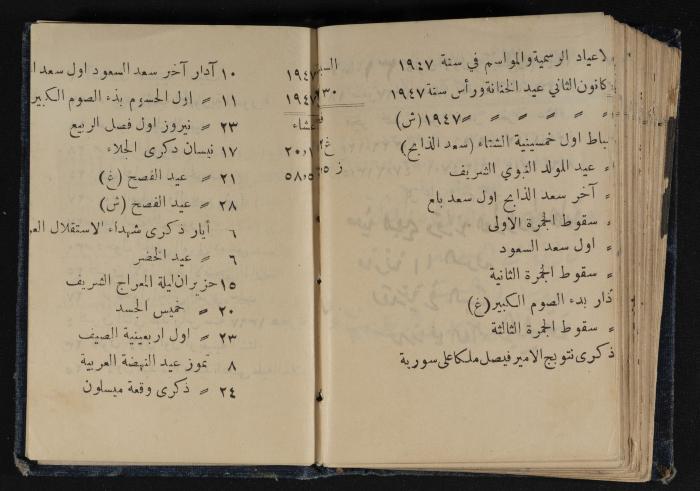 لاعياد الرسمية والمواسم في سنة ١٩٤٧
كانون الثاني عيد الختانة ورأس سنة ١٩٤٧
〃 〃 〃 〃 〃 ١٩٤٧ (ش)
باط اول خمسينية الشتاء (سعد الذابح)
〃 عيد المولد النبوي الشريف
〃 آخر سعد الذابح اول سعد بلع
〃 سقوط الجمرة الاولى
〃 اول سعد السعود
〃 سقوط الجمرة الثانية
ذار بدء الصوم الكبير (غ)
〃 سقوط الجمرة الثالثة
ذكرى تتويج الامير فيصل ملكا على سورية
١٩٤٧
١٩٤٧
عشاء
١٠ آذار آخر سعد السعود اول سعد ا
١١ 〃 اول الحسوم بدء الصوم الكبير
٢٣ 〃 نيروز اول فصل الربيع
١٧ نيسان ذكرى الجلاء
٢١ 〃 عيد الفصح (غ)
٢٨ 〃 عيد الفصح (ش)
٦ أيار ذكرى شهداء الاستقلال الع
٦ 〃 عيد الخضر
١٥ حزيران ليلة المعراج الشريف
٢٠ 〃 خميس الجسد
٢٣ 〃 اول اربعينية الصيف
٨ تموز عيد النهضة العربية
٢٤ 〃 ذكرى وقعة ميسلون